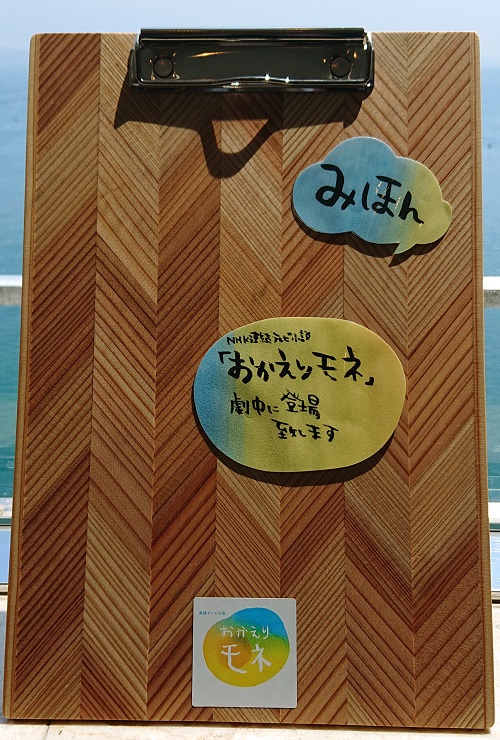 みほん
NHK連続テレビ小説
「おかえりモネ」
劇中に登場
致します
連続テレビ小説
おかえり
モネ